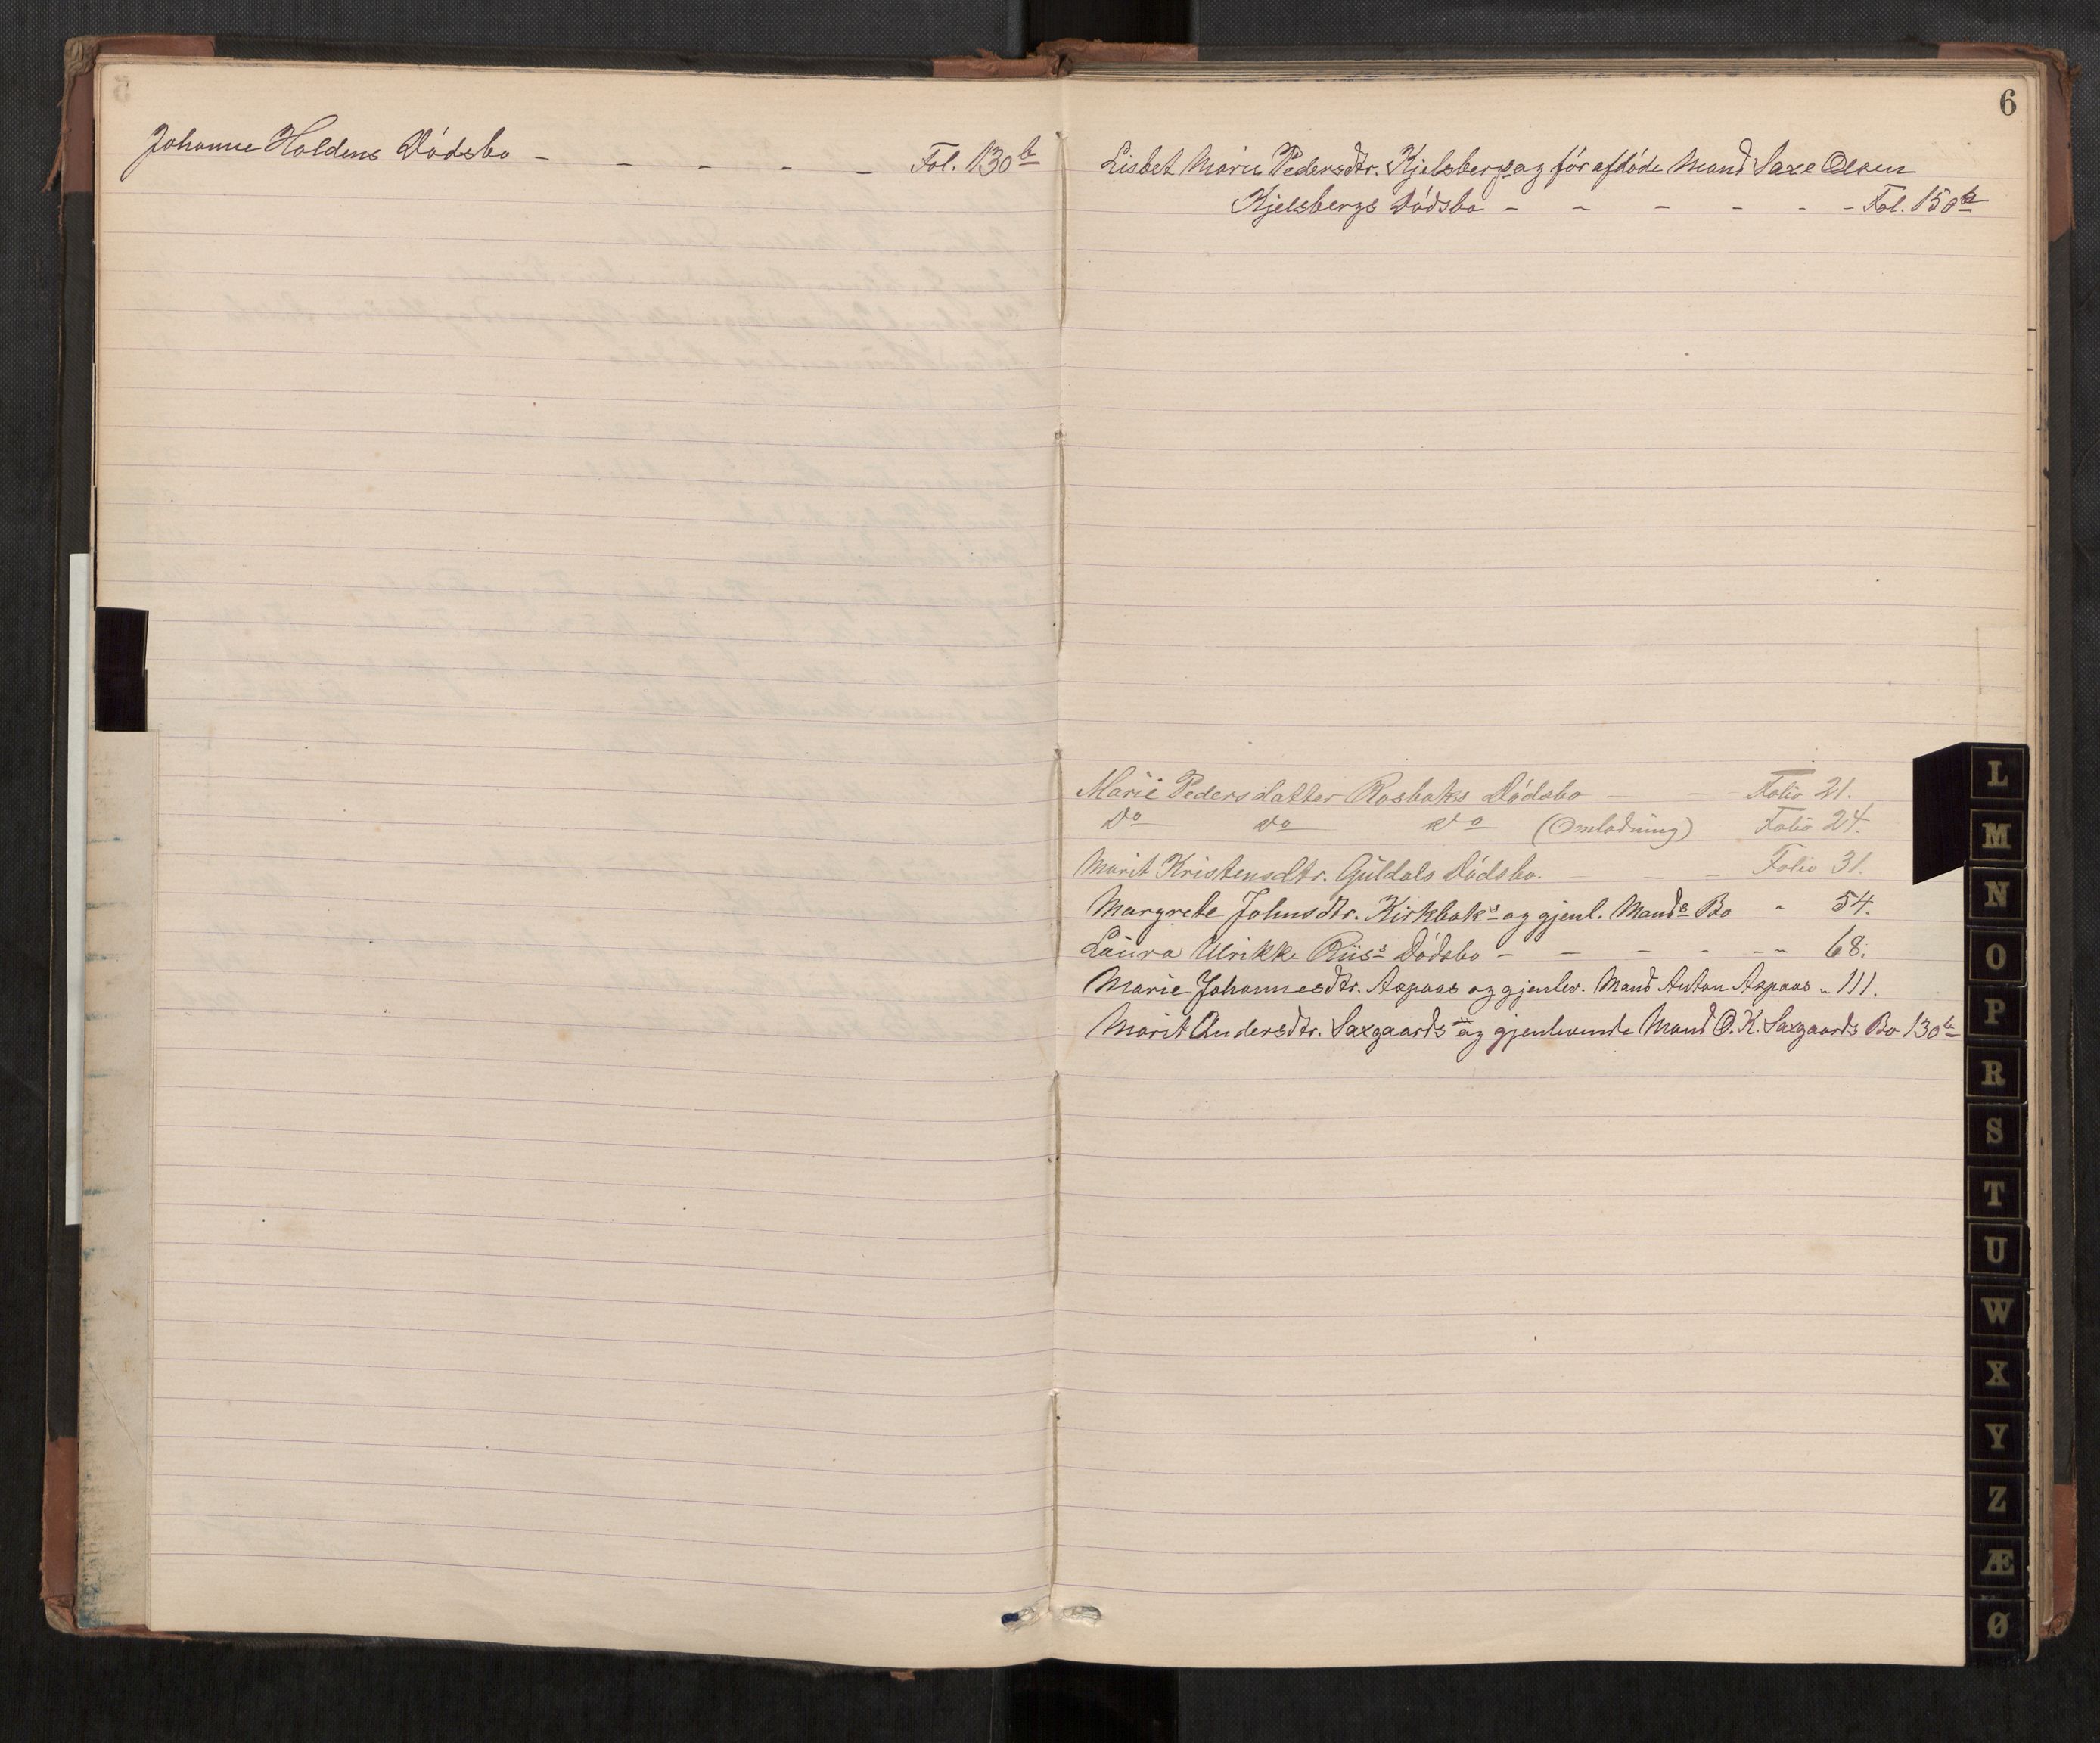 Johanne Holdens Dödsbo - - - - - Fol. 130 b
6
Lisbet Marie Pedersdtr. Kjelsbergs og för afdöde Mand Saxe Olsen
Kjelsbergs Dödsbo - - - - - - Fol. 150 b
Marie Pedersdatter Rosbaks Dödsbo - - Folio 21.
Do Do Do (Omlodning) Folio 24.
Marit Kristensdtr. Guldals Dödsbo. - - - Folio 31.
Margrete Johnsdtr. Kirkbaks og gjenl. Mands Bo " 54.
Laura Ulrikke Riis's Dödsbo - - - - - " 68.
Marie Johannesdtr. Aspaas og gjenlev. Mand Anton Aspaas " 111.
Marit Andersdtr. Saxgaards og gjenlevende Mand O. K. Saxgaards Bo 130 b
L
M
N
O
P
R
S
T
U
W
X
Y
Z
Æ
Ø